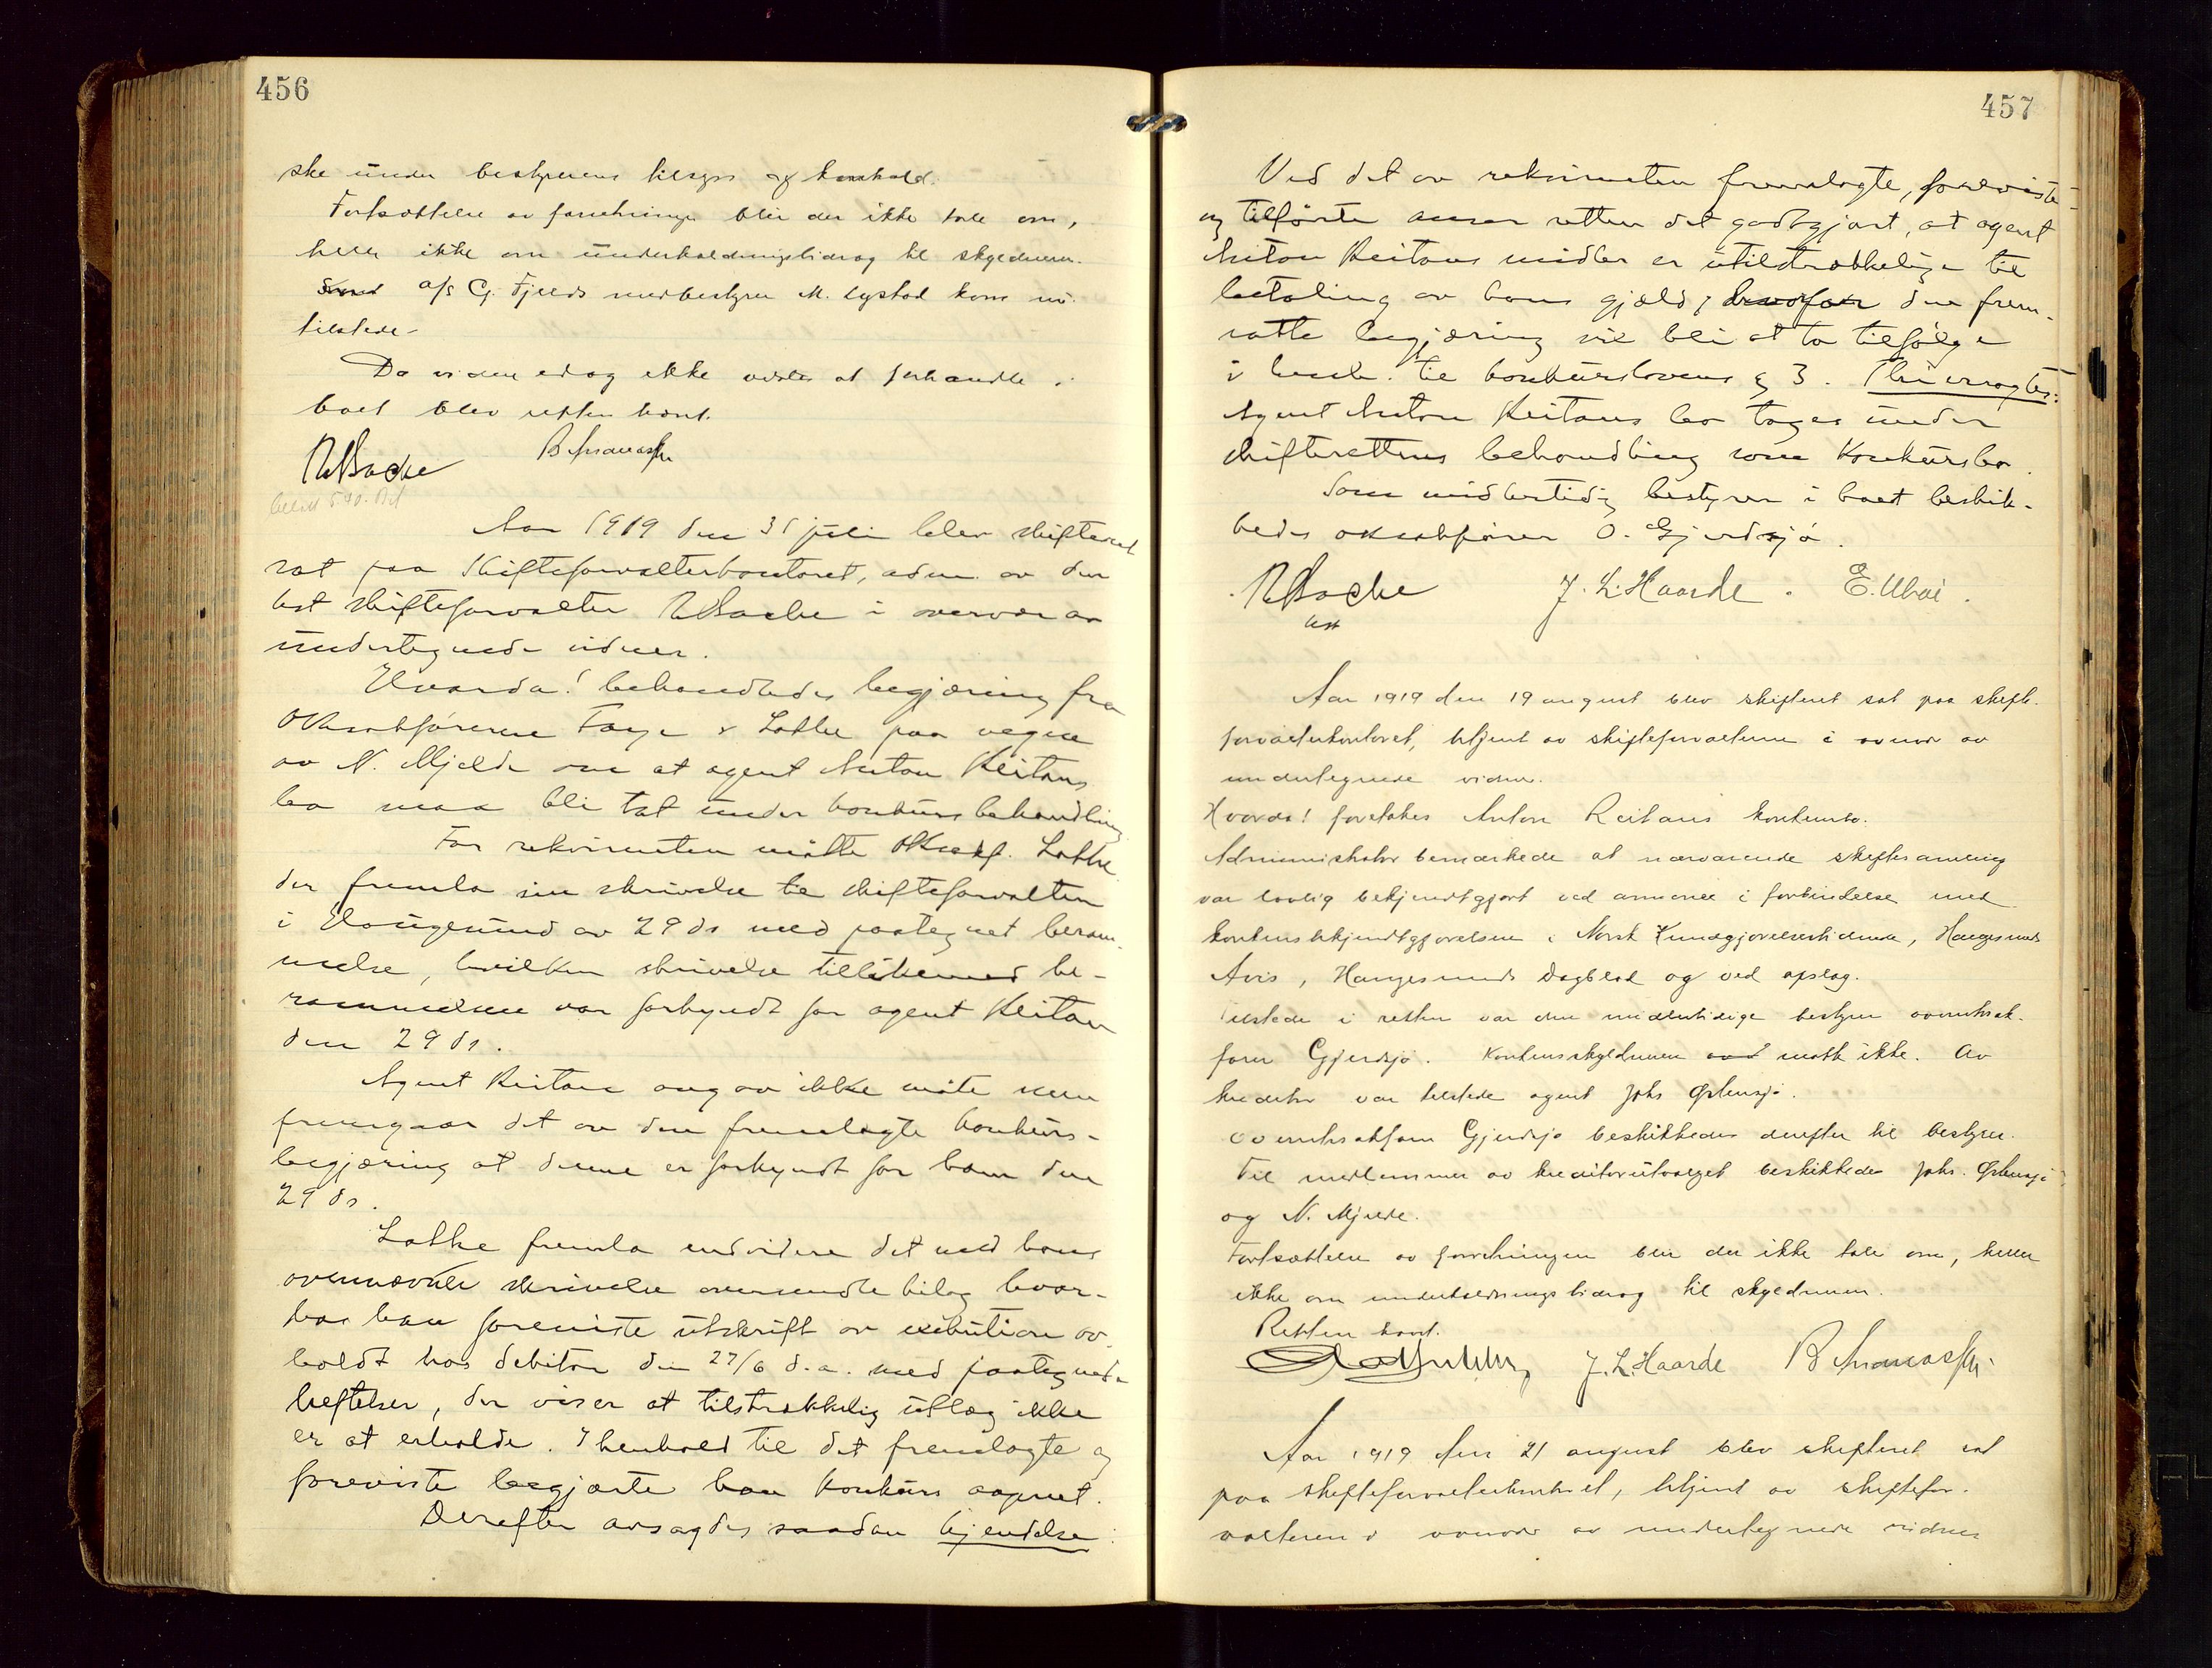 456
ske under bestyrerens tilsyn og kontrol.
Fortsættelse av forretninge blir der ikke tale om,
heller ikke om underholdningsbidrag til skyldneren.
a/s G. Fjelds medbestyrer M. Lystad kom nu
tilstede.
Da videre idag ikke vides at forhandle i
boet blev retten hævt.
N Backe
Aar 1919 den 31 juli blev skifteret
sat paa skifteforvalterkontoret, adm. av den
kst skifteforvalter N Backe i overvær av
undertegnede vidner.
Hvorda! behandledes begjæring fra
Oksakførerne Faye & Lothe paa vegne
av N. Mjelde om at agent Anton Reitans
bo maa bli tat under konkurs behandling
For rekvirenten møtte Oksakf. Lothe
der fremla sin skrivelse til skifteforvalteren
i Haugesund av 29 ds med paategnet beram-
melse, hvilken skrivelse tillikemed be-
rammelsen var forkyndt for agent Reitan
den 29 ds.
Agent Reitan ikke møte men
fremgaar det av den fremlagte konkurs-
begjæring at denne er forkyndt for ham den
29 ds.
Lothe fremla endvidere det med hans
ovennævnte skrivelse oversendte bilag hvor-
hos han foreviste utskrift av exekution av-
holdt hos debitor den 27/6 d.a. med paategnede
heftelser, der viser at tilstrækkelig utlæg ikke
er at erholde. I henhold til det fremlagte og
foreviste begjærte han konkurs aapnet.
Derefter avsagdes saadan kjendelse:
457
Ved det av rekvirenten fremlagte, foreviste
og tilførte anser retten det godtgjort, at agent
Anton Reitans midler er utilstrækkelige til
betaling av hans gjæld, hvorfor den frem-
satte begjæring vil bli at ta tilfølge
i henh. til konkurslovens § 3. Thi eragtes:
Agent Anton Reitans bo tages under
skifterettens behandling som konkursbo.
Som midlertidig bestyrer i boet beskik-
kedes oksakfører O. Gjerdsjø.
N Backe J. L. Haarde. E. Ubøe.
kst
Aar 1919 den 19 august blev skifteret sat paa skifte-
forvalterkontoret, betjent av skifteforvalteren i overvær av
undertegnede vidner.
Hvorda! foretokes Anton Reitans konkursbo.
Administrator bemærkede at nærværende skiftesamling
var lovlig bekjendtgjort ved annonce i forbindelse med
konkursbekjendtgjørelsen i Norsk Kundgjørelsestidende, Haugesunds
Avis, Haugesunds Dagblad og ved opslag.
Tilstede i retten var den midlertidige bestyrer overretssak-
fører Gjerdsjø. Konkursskyldneren møtte ikke. Av
kreditor var tilstede agent Johs Østensjø.
Overretssakfører Gjerdsjø beskikkedes derefter til bestyrer.
Til medlemmer av kreditorutvalget beskikkedes Johs. Østensjø
og N. Mjelde.
Fortsættelse av forretningen blir der ikke tale om, heller
ikke om underholdningsbidrag til skyldneren.
Retten hævt.
J. L. Haarde
Aar 1919 den 21 august blev skifteret sat
paa skifteforvalterkontoret, betjent av skiftefor-
valteren i overvær av undertegnede vidner